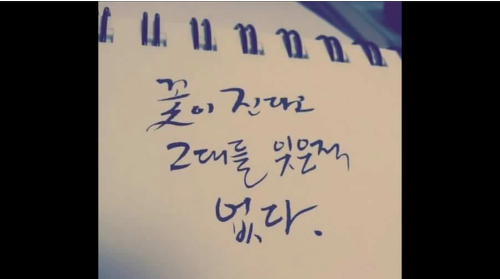 꽃이 진다고
그대를 잊은적
없다.